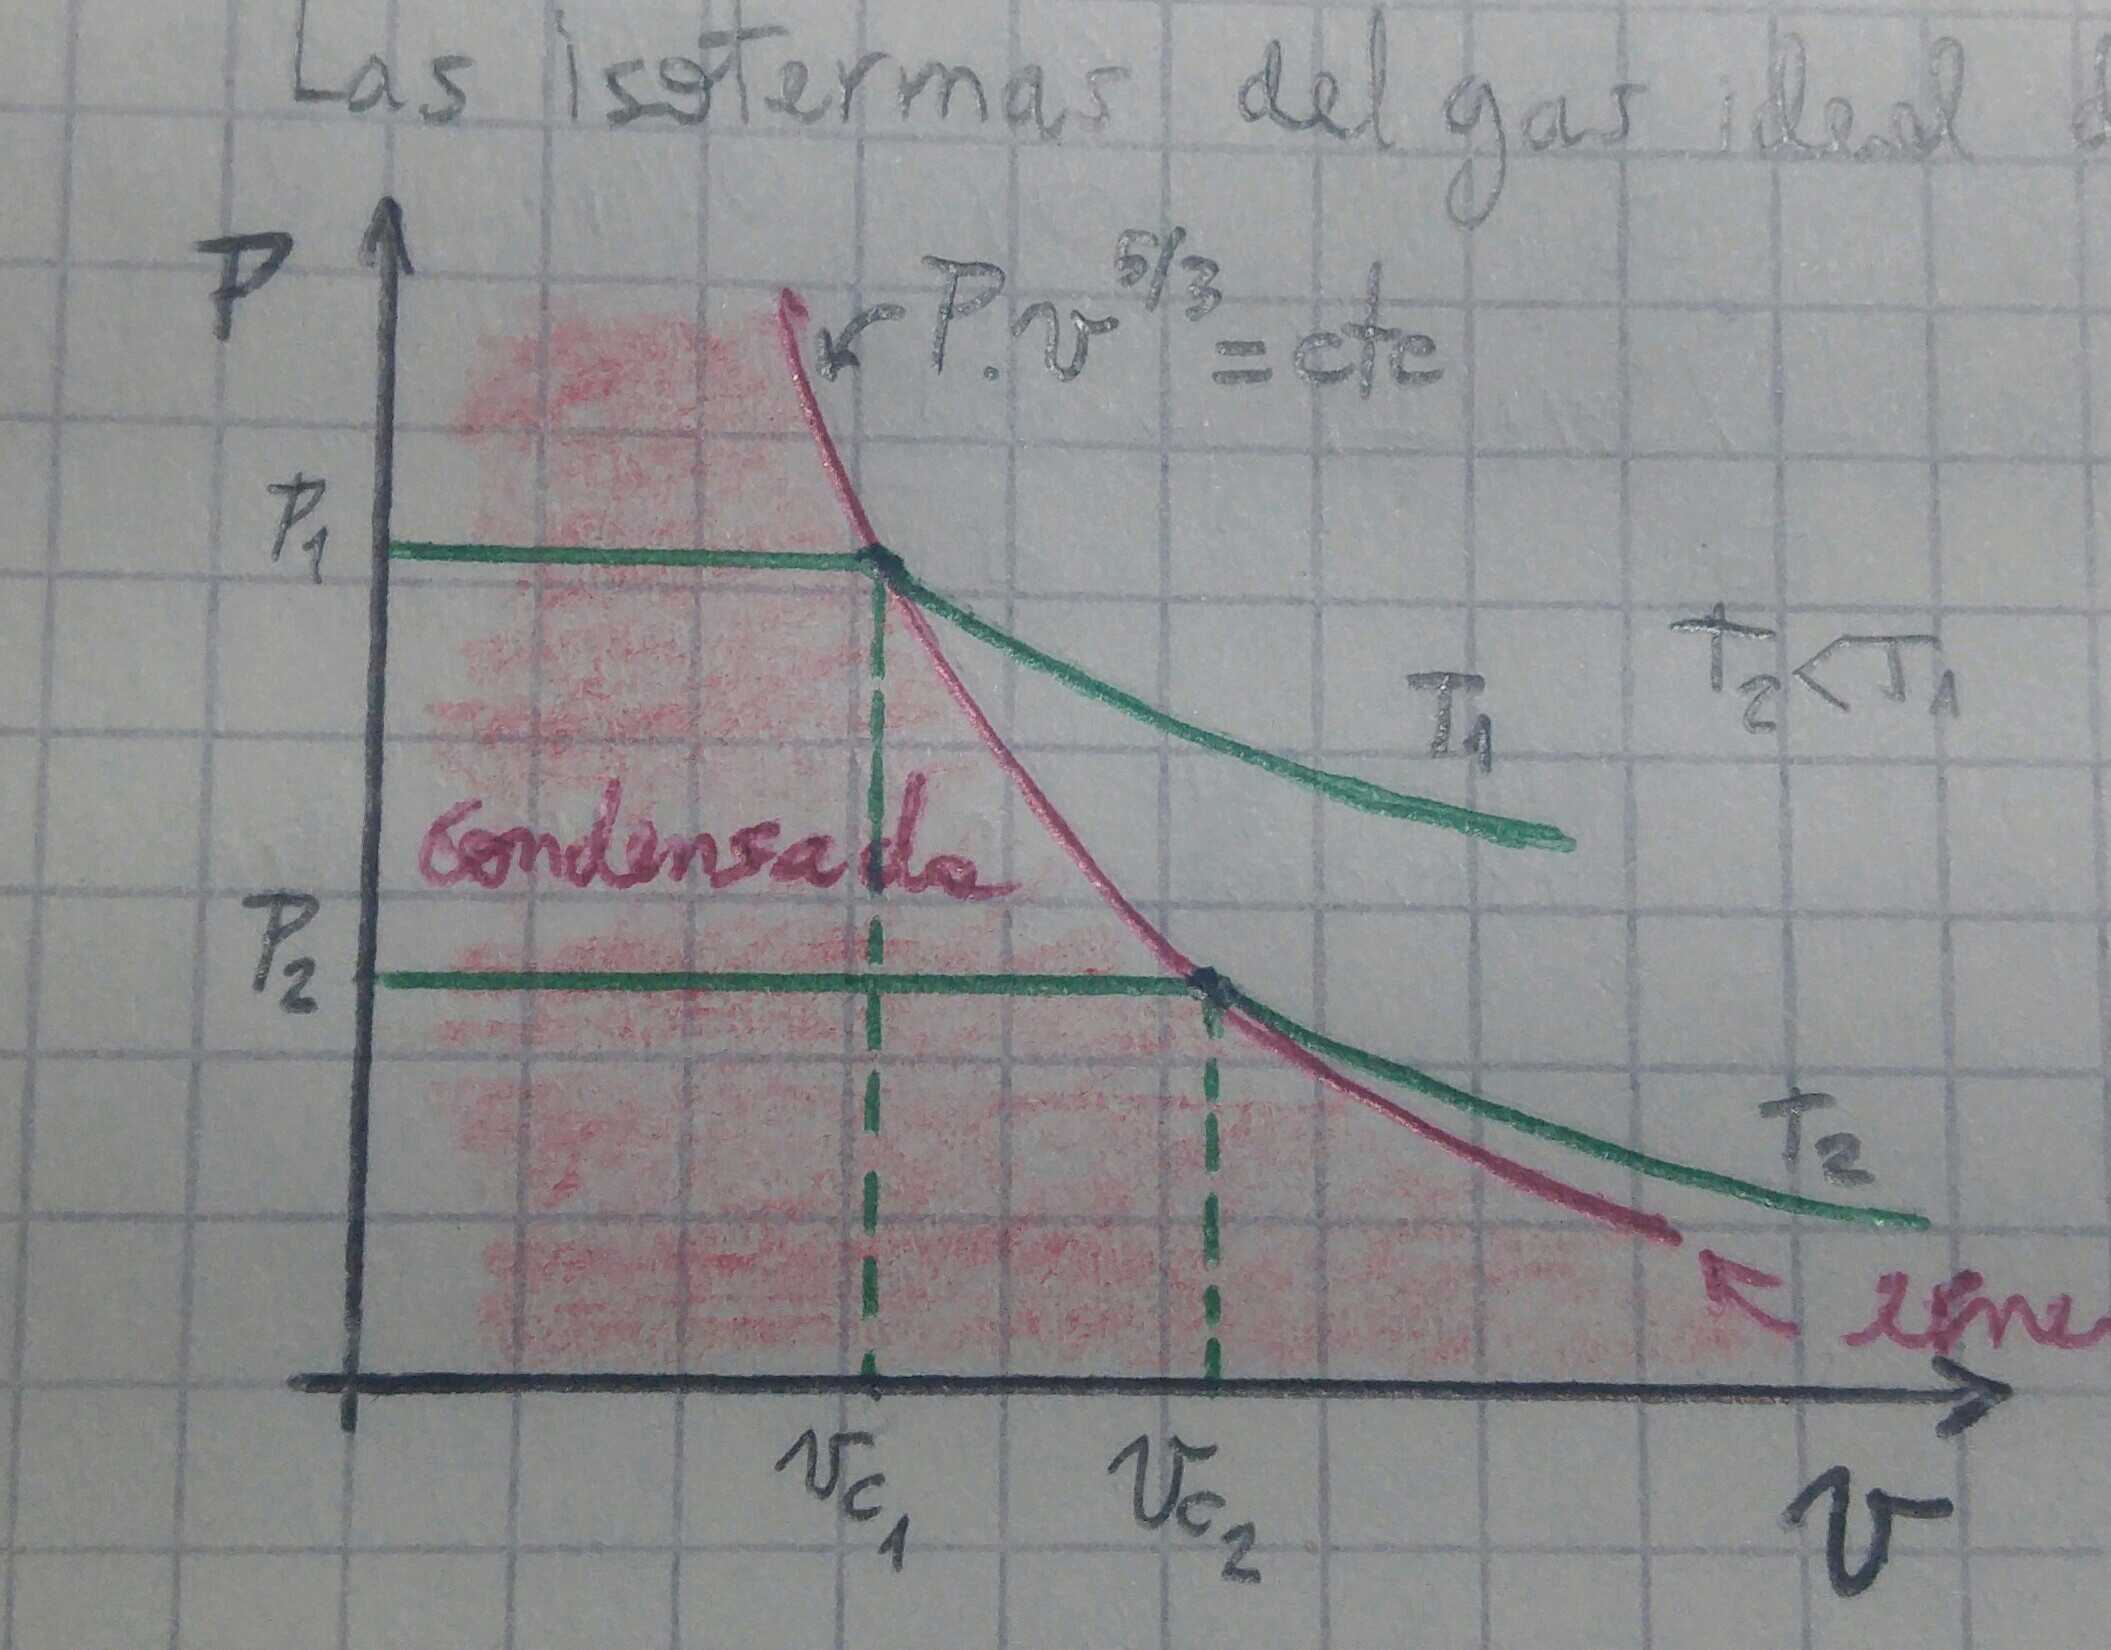 Las isotermas del gas ideal d
P
P.v^5/3 = cte
P₁
T₂<T₁
T₁
condensada
P₂
T₂
v_c₁
v_c₂
v